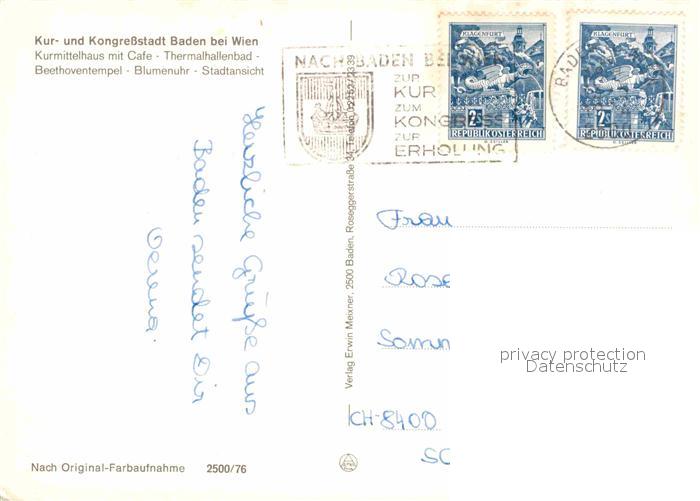 Kur- und Kongreßstadt Baden bei Wien
Kurmittelhaus mit Cafe - Thermalhallenbad -
Beethoventempel - Blumenuhr - Stadtansicht
Herzliche Grüße aus
Baden sendet Dir
Verena
Nach Original-Farbaufnahme 2500/76
Verlag Erwin Meixner, 2500 Baden, Roseggerstraße 34, Telefon 02252/2389
NACH BADEN BEI WIEN
ZUR
KUR
ZUM
KONGRESS
ZUR
ERHOLUNG
KLAGENFURT
2S
REPUBLIK ÖSTERREICH
KLAGENFURT
2S
REPUBLIK ÖSTERREICH
BADEN
Frau
Rose
Somm
privacy protection
Datenschutz
CH-8400
SC